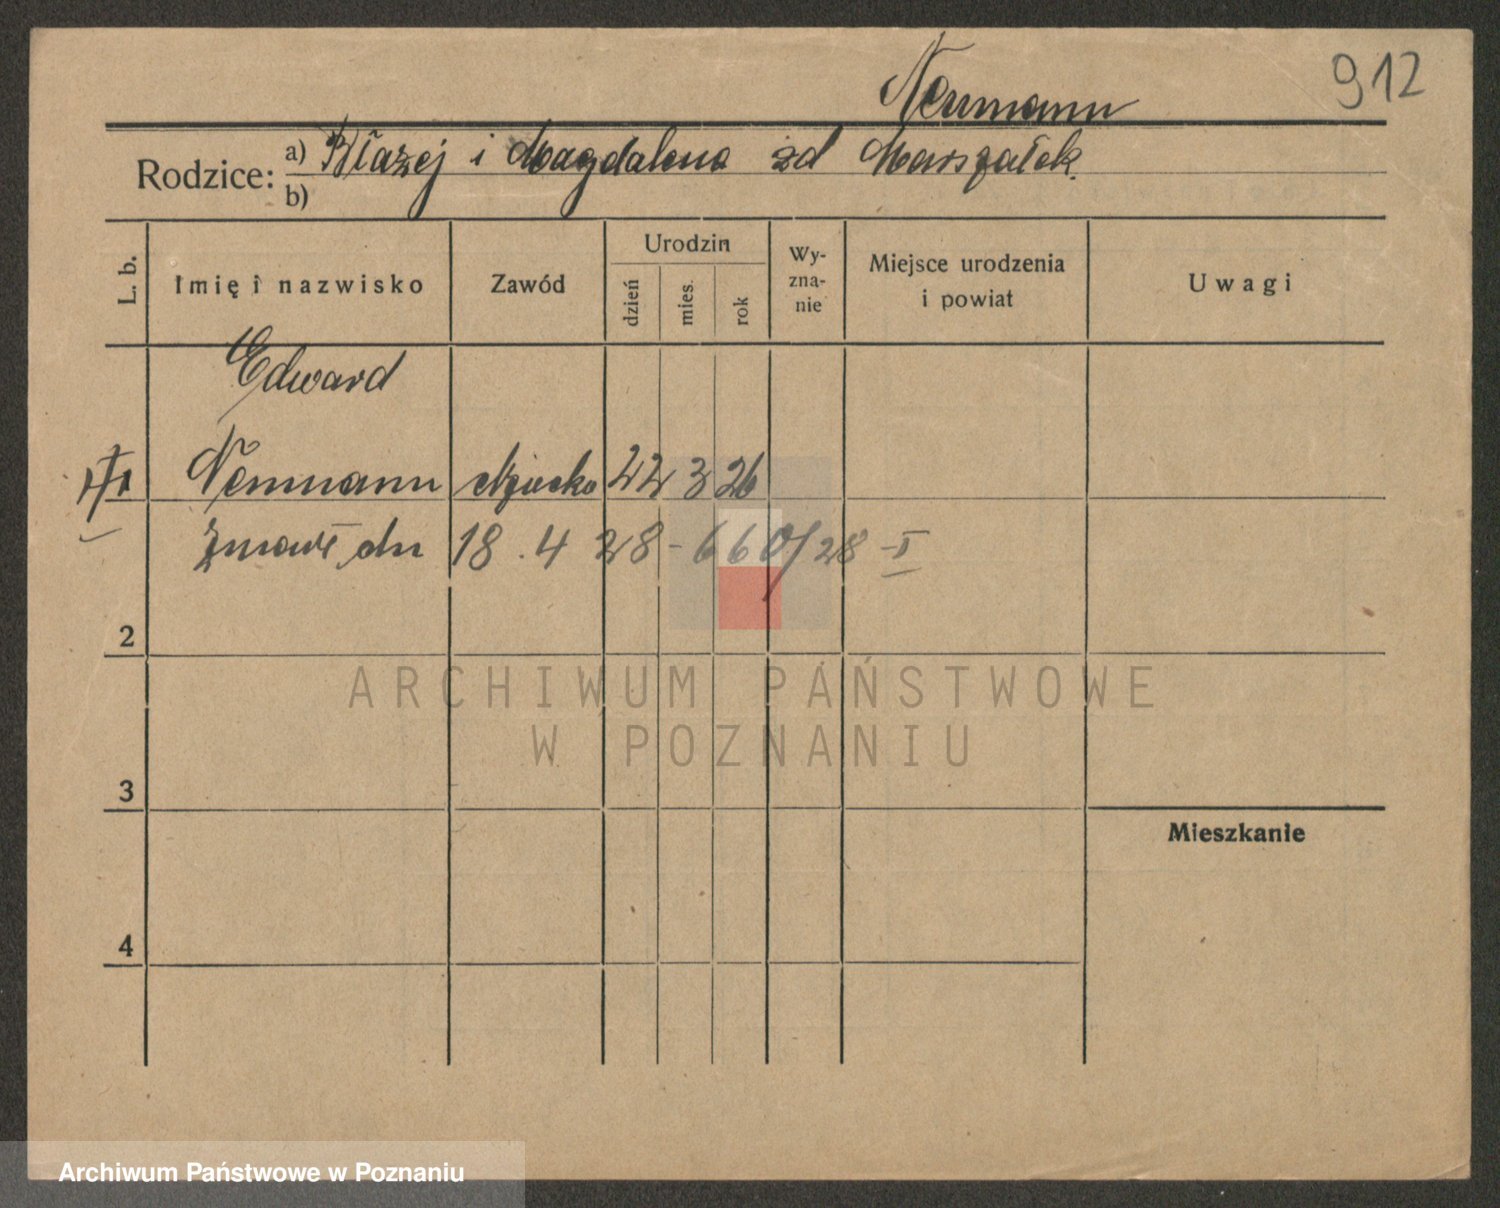 912
Neumann
Rodzice: a) Błażej i Magdalena zd Marszałek.
b)
L. b.
Imię i nazwisko
Zawód
Urodzin
dzień
mies.
rok
Wy-
zna-
nie
Miejsce urodzenia
i powiat
Uwagi
Edward
1 Neumann dziecko 22 3 26
zmarł dn 18.4 28 - 660/28 - I
2
3
4
Mieszkanie
ARCHIWUM PAŃSTWOWE
W POZNANIU
Archiwum Państwowe w Poznaniu